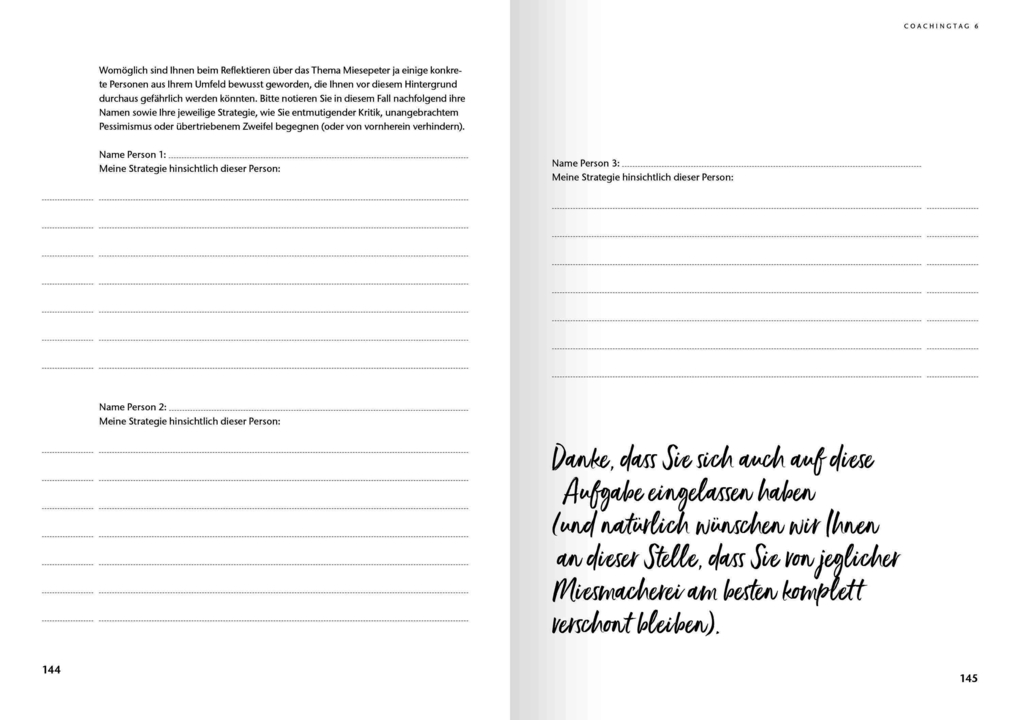 Womöglich sind Ihnen beim Reflektieren über das Thema Miesepeter ja einige konkre-
te Personen aus Ihrem Umfeld bewusst geworden, die Ihnen vor diesem Hintergrund
durchaus gefährlich werden könnten. Bitte notieren Sie in diesem Fall nachfolgend ihre
Namen sowie Ihre jeweilige Strategie, wie Sie entmutigender Kritik, unangebrachtem
Pessimismus oder übertriebenem Zweifel begegnen (oder von vornherein verhindern).
Name Person 1:
Meine Strategie hinsichtlich dieser Person:
Name Person 2:
Meine Strategie hinsichtlich dieser Person:
144
COACHINGTAG 6
Name Person 3:
Meine Strategie hinsichtlich dieser Person:
Danke, dass Sie sich auch auf diese
Aufgabe eingelassen haben
(und natürlich wünschen wir Ihnen
an dieser Stelle, dass Sie von jeglicher
Miesmacherei am besten komplett
verschont bleiben).
145